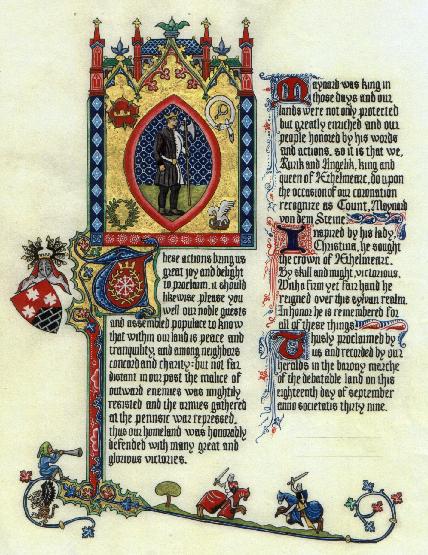 These actions bring us
great joy and delight
to proclaim, it should
likewise please you
well our noble guests
and assembled populace to know
that within our land is peace and
tranquility, and among neighbors
concord and charity: but not far
distant in our past the malice of
outward enemies was mightily
resisted and the armies gathered
at the pennsic war repressed,
thus our homeland was honorably
defended with many great and
glorious victories.
Maynard was king in
those days and our
lands were not only protected
but greatly enriched and our
people honored by his words
and actions. so it is that we,
Rurik and Angelik, king and
queen of Æthelmearc, do upon
the occasion of our coronation
recognize as Count, Maynard
von dem Steine.
Inspired by his lady,
Christina, he sought
the crown of Æthelmearc.
By skill and might, victorious.
With a firm yet fair hand he
reigned over this sylvan realm.
In honor he is remembered for
all of these things.
Thusly proclaimed by
us and recorded by our
heralds in the barony marche
of the debatable land on this
eighteenth day of september
anno societatis thirty nine.